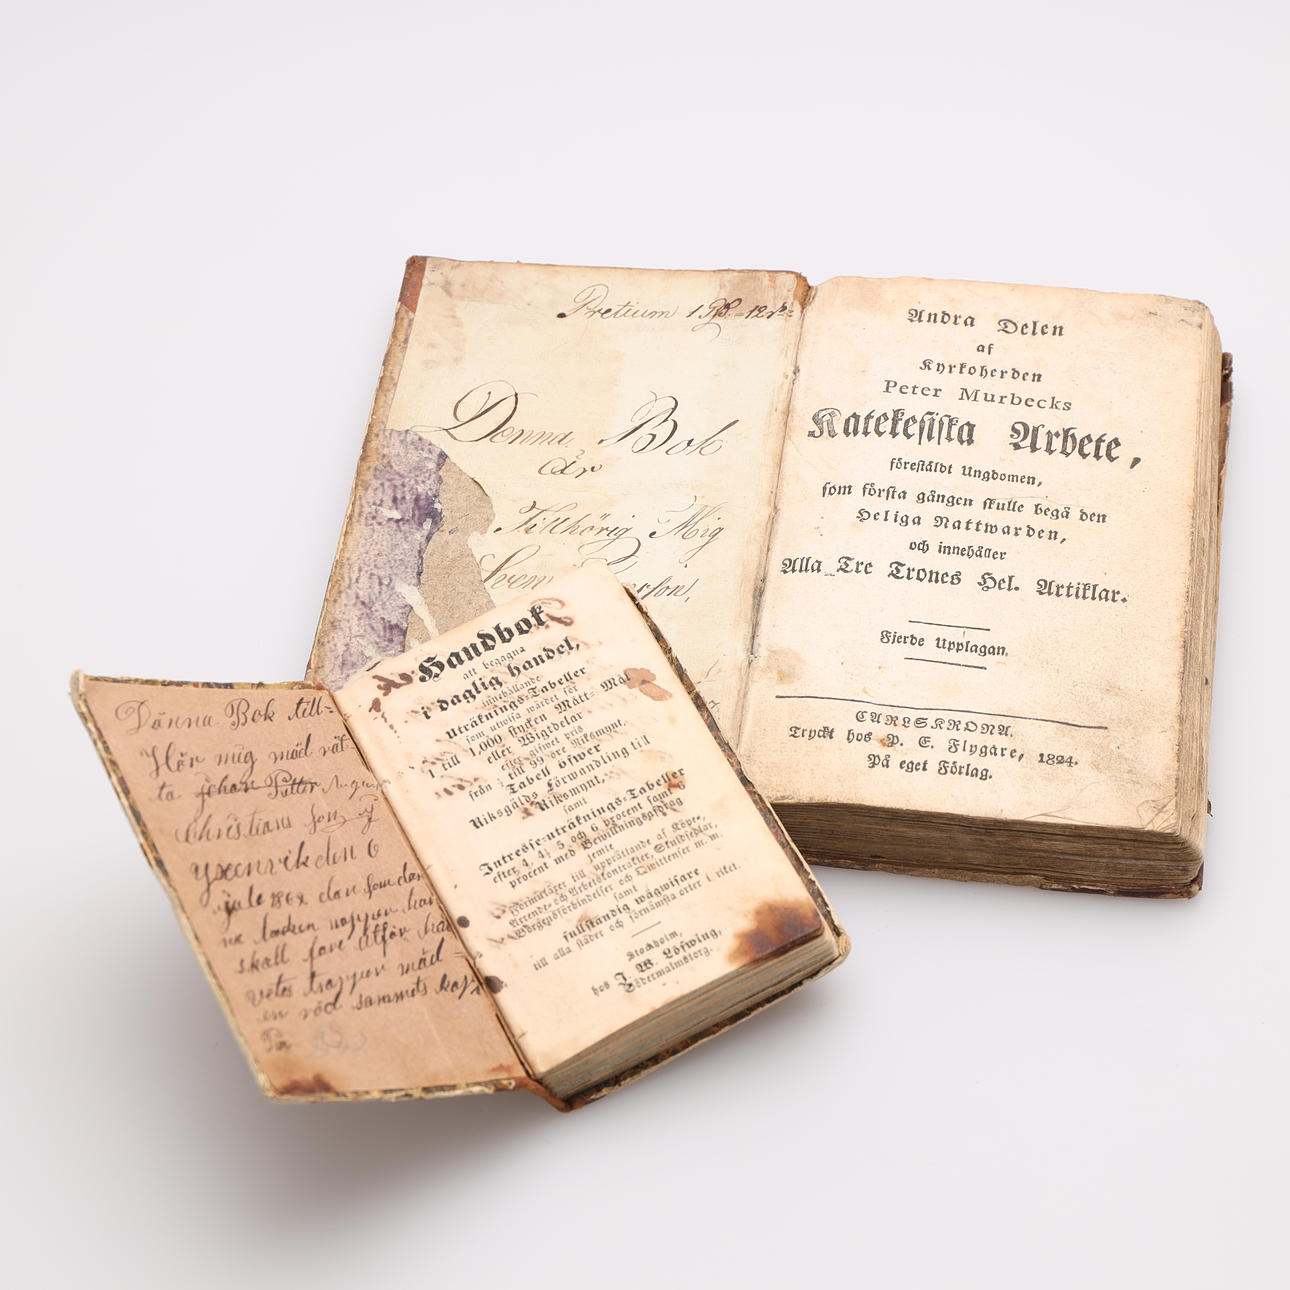 Pretium 1
Denna Bok
är
Tillhörig Mig
Sven
Andra Delen
af
Kyrkoherden
Peter Murbecks
Katekesiska Arbete,
förestäldt Ungdomen,
som första gången skulle begå den
Heliga Nattwarden,
och innehåller
Alla Tre Trones Hel. Artiklar.
Fjerde Upplagan.
CARLSKRONA,
Tryckt hos P. E. Flygare, 1824.
På eget Förlag.
Dänna Bok till-
Hör mig mäd rät-
ta Johan Petter
Christians son
den 6
1862 den som den
skall fare
mäd
en röd sammets
Handbok
att begagna
i daglig handel,
innehållande
Uträknings-Tabeller
som utwisa wärdet för
1 till 1,000 stycken Mått- Mål
eller Wigtdelar
efter gifwet pris
till 99 öre Riksmynt,
Tabell öfwer
Riksgälds Förwandling till
Riksmynt,
samt
Intresse-uträknings-Tabeller
efter 4, 4½ 5, och 6 procent samt 6
procent med Bewillningsafdrag
jemte
Formulärer till upprättande af Köpe-,
Arrende- och Arbetskontrakter, Skuldsedlar,
Borgensförbindelser och Qwittenser m. m.
samt
fullständig wägwisare
till alla städer och förnämsta orter i riket.
Stockholm,
hos J. W. Löfwing,
Södermalmstorg.